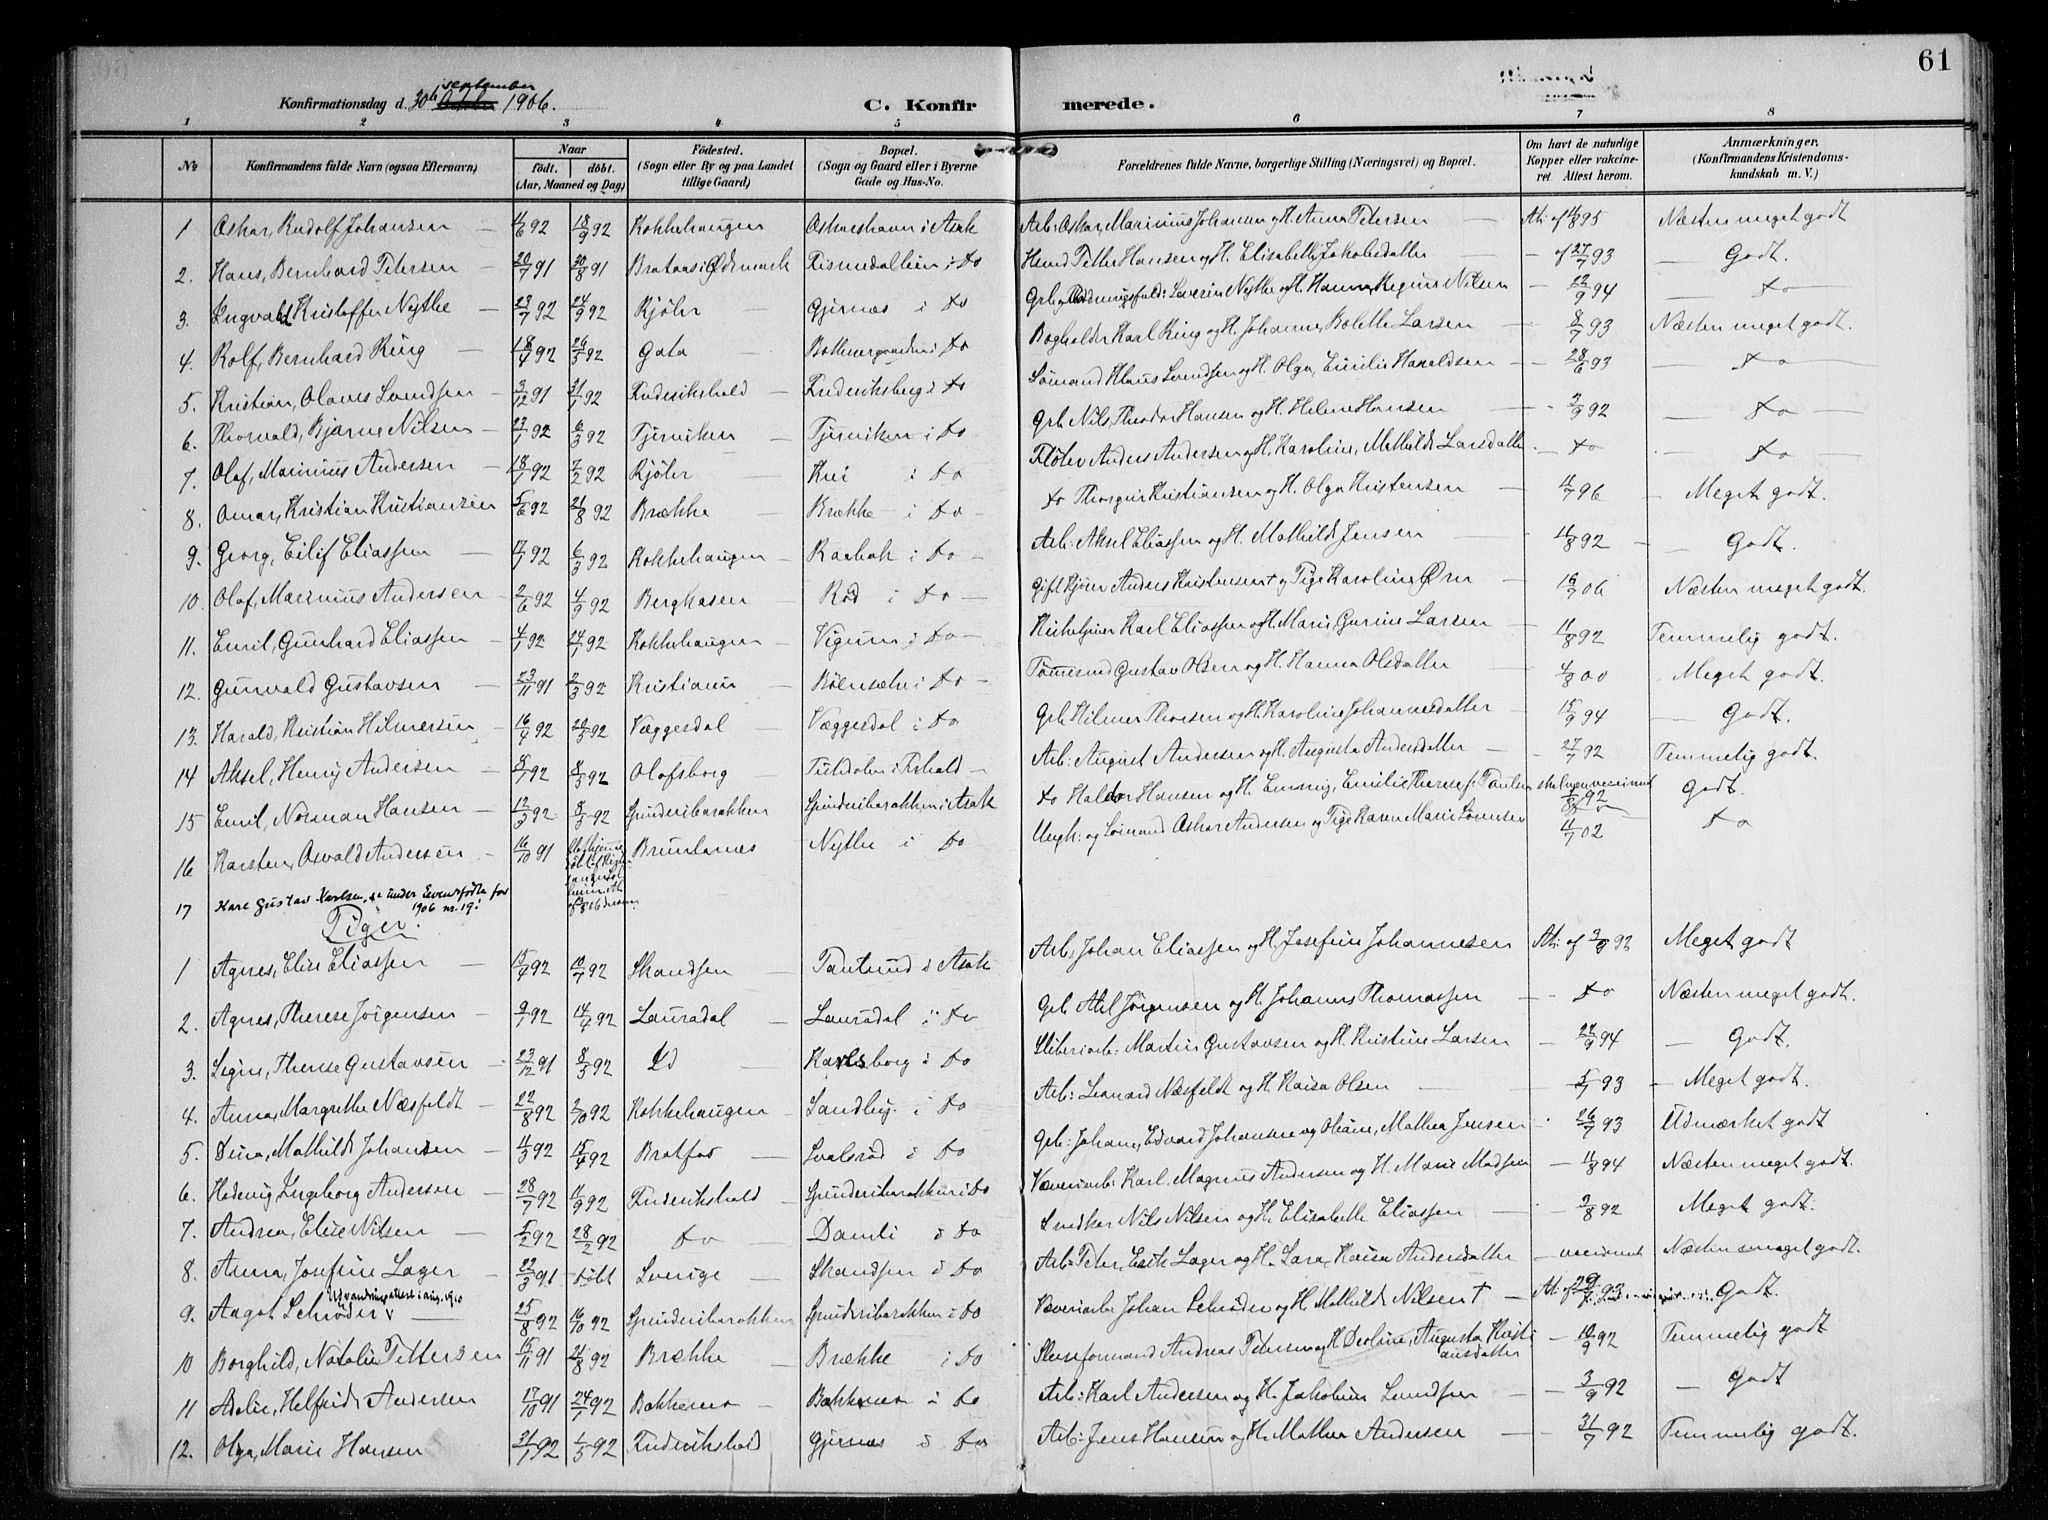 61
september
Konfirmationsdag d. 30te October 1906. C. Konfirmerede.
1 2 3 4 5 6 7 8
No Konfirmandens fulde Navn (ogsaa Efternavn) Naar født. døbt. (Aar, Maaned og Dag) Fødested. (Sogn eller By og paa Landet tillige Gaard) Bopæl. (Sogn og Gaard eller i Byerne Gade og Hus-No. Forældrenes fulde Navne, borgerlige Stilling (Næringsvei) og Bopæl. Om havt de naturlige Kopper eller vakcineret. Attest herom. Anmærkninger. (Konfirmandens Kristendomskundskab m. V.)
1 Oskar, Rudolf Johansen 4/6 92 18/9 92 Kokkehaugen Oskarshavn i Asak Arb: Oskar, Marinius Johansen og H. Anna Petersen At: of 4/8 95 Næsten meget godt
2. Hans, Bernhard Petersen 20/7 91 30/8 91 Brataas i Ødemark Rismedalleien i do Petter Hansen og H. Elisabeth Jakobsdatter - of 27/7 93 Godt.
3. Ingvald Kristoffer Nythe 23/7 92 24/9 92 Kjøln Gjernæs i do Severin Nythe og H. Hanna Regine Nilsen 22/9 94 do
4. Rolf, Bernhard Ring 18/4 92 26/5 92 Gata Bothnergaarden i do Bogholder Karl Ring og H. Johanne, Bolette Larsen 8/7 93 Næsten meget godt.
5. Kristian, Olaves Svendsen 3/12 91 31/1 92 Frederikshald Frederiksberg i do Sømand Klaus Svendsen og H. Olga, Emilie Haraldsen 28/6 93 do
6. Thorvald, Bjarne Nilsen 23/1 92 6/3 92 Tjerviken Tjerviken i do Grb Nils, Theodor Hansen og H. Helene Hansen 2/9 92 do
7. Olaf, Marinius Andersen 18/1 92 7/2 92 Kjøln i do Fløter Anders Andersen og H. Karoline, Mathilde Larsdatter do do
8. Omar, Kristian Kristiansen 5/6 92 21/8 92 Brække Brække i do do Thorger Kristiansen og H. Olga Kristensen 4/7 96 Meget godt.
9. Georg, Eilif Eliassen 17/1 92 6/3 92 Kokkehaugen Raabak i do Arb: Aksel Eliassen og H. Mathilde Jensen 11/8 92 Godt.
10. Olaf, Marinius Andersen 2/6 92 4/9 92 Berghasen Rød i do Anders Kristensen + og Pige Karoline Ørn 16/7 06 Næsten meget godt.
11. Emil, Gunhard Eliassen 4/1 92 24/1 92 Kokkehaugen Vigum i do Kirketjener Karl Eliassen og H. Marie, Gurine Larsen 11/8 92 Temmelig godt.
12. Gunvald Gustavsen 23/11 91 2/3 92 Kristiania Bøensæte i do Gustav Olsen og H. Hanna Olsdatter 4/8 00 Meget godt.
13. Harald, Kristian Hilmersen 16/4 92 22/5 92 Væggesdal Væggesdal i do Grb Hilmer Thorsen og H. Karoline Johannesdatter 15/9 94 Godt.
14 Aksel, Henry Andersen 8/1 92 8/3 92 Olafsborg i Frhald Arb: August Andersen og H. Augusta Andersdatter 27/7 92 Temmelig godt.
15 Emil, Norman Hansen 12/3 92 8/5 92 Spinderibarakken Spinderibarakken i Asak do Haldor Hansen og H. Emmy, Emilie, Therese f. Paulsen 1/8 92 Godt.
16 Karsten, Osvald Andersen 16/10 91 Brunlanæs Nythe i do Ungk: og Sømand Oskar Andersen og Pige Karen Marie Sørensen 11/7 02 do
17 Karl Gustav Karlsen, se under Levendefødte for 1906 nr. 19!
Piger.
1 Agnes, Elise Eliassen 15/4 92 10/7 92 Skandsen i Asak Arb: Johan Eliassen og H. Josefine Johannesen At: of 3/9 92 Meget godt
2. Agnes, Therese Jørgensen 9/1 92 14/4 92 Lauradal Lauradal i do Grb Abel Jørgensen og H. Johanne Thomassen do Næsten meget godt.
3. Signe, Therese Gustavsen 23/12 91 8/3 92 Id Karlsborg i do Sliberiarb: Martin Gustavsen og H. Kristine Larsen 24/9 94 Godt.
4. Anna, Margrethe Næsfeldt 22/8 92 2/10 92 Kokkehaugen Sandby i do Arb: Leonard Næsfeldt og H. Kaisa Olsen 5/7 93 Meget godt.
5. Dina, Mathilde Johansen 4/3 92 15/4 92 Bratfos Svalerød i do Grb: Johan, Edvard Johansen og Oliane, Mathea Jensen 26/7 93 Udmærket godt
6. Hedevig, Ingeborg Anderson 28/7 92 11/9 92 Frederikshald Spinderibarakken i do Væveriarb: Karl, Magnus Anderson og H. Marie Madsen 11/8 94 Næsten meget godt.
7. Andrea, Elise Nilsen 5/2 92 28/2 92 do Damli i do Snedker Nils Nilsen og H. Elisabeth Eliassen 2/8 92 Meget godt.
8. Anna, Josefine Lager 22/3 91 døbt Sverige Skandsen i do Arb: Peter, Erik Lager og H. Sara, Kaisa Andersdatter vaccineret Næsten meget godt.
Udvandringsattest i aug. 1910
9. Aagot Schrøder v 25/8 92 16/10 92 Spinderibarakken Spinderibarakken i do Væveriarb Johan Schrøder og H. Mathilde Nilsen + At: of 29/7 93 Godt.
10 Borghild, Natalie Pettersen 15/11 91 21/8 92 Brække Brække i do Andreas Petersen og H. Deoline, Augusta Kristiansdatter 10/9 92 Temmelig godt
11 Adele, Helfrid Andersen 17/10 91 24/1 92 Bakkemo Bakkemo i do Arb: Karl Andersen og H. Jakobine Svendsen 3/9 92 Godt
12. Olga, Marie Hansen 31/1 92 1/5 92 Frederikshald Gjernæs i do Arb: Jens Hansen og H. Mathea Andersen 31/7 92 Temmelig godt.